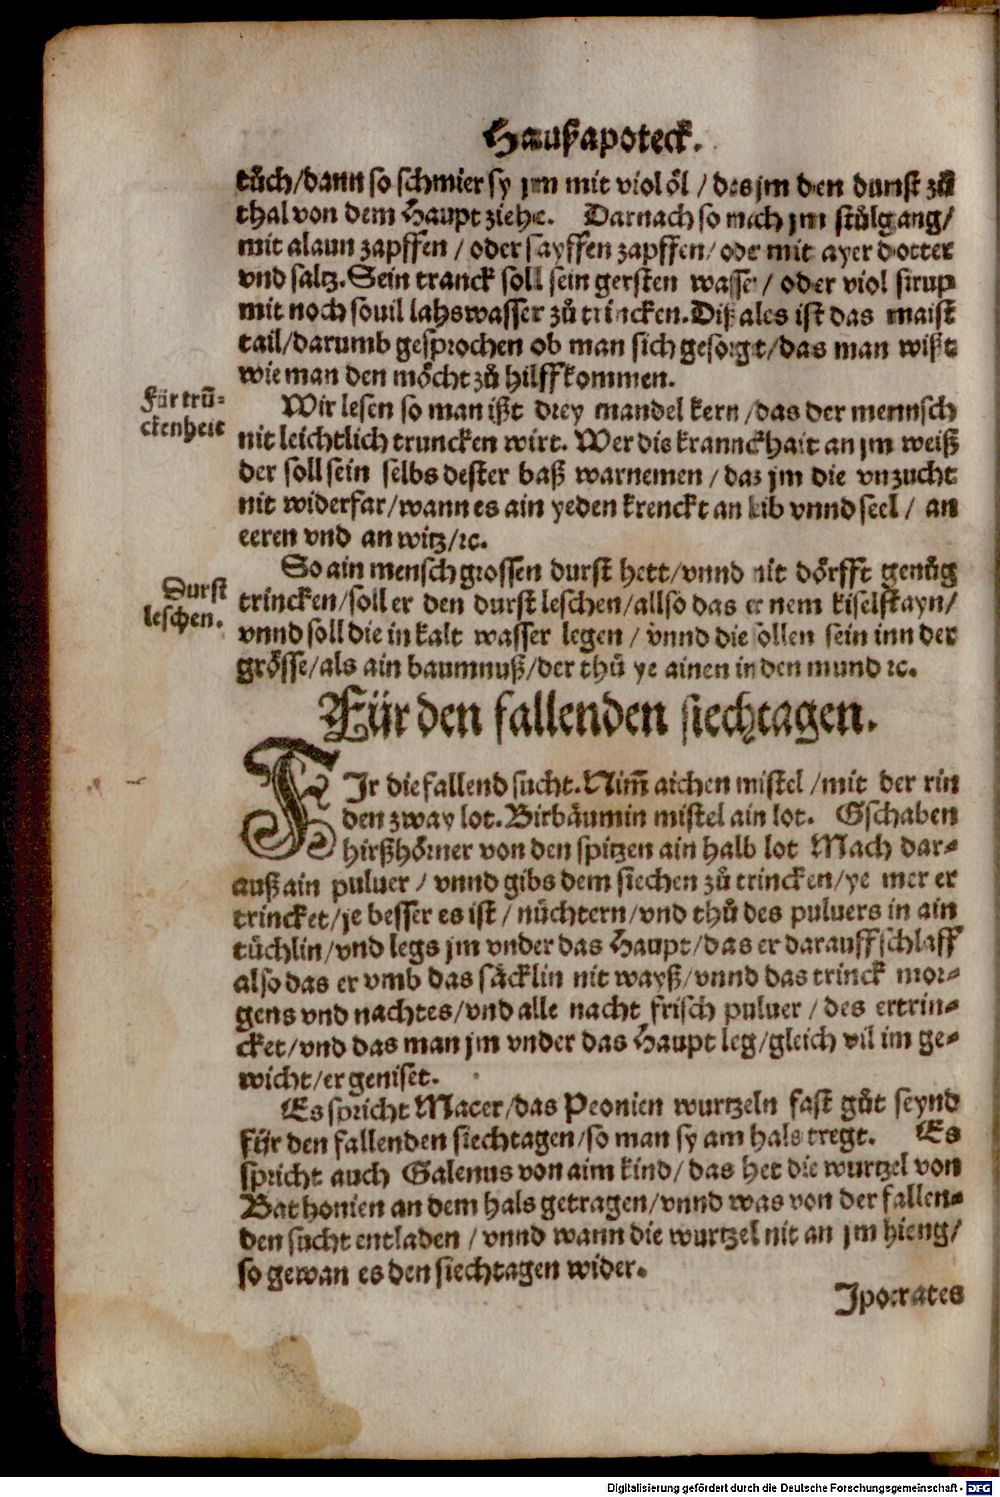 Haußapoteck.
tuͦch/dann so schmier sy jm mit viol oͤl / des jm den dunst zuͦ
thal von dem Haupt ziehe. Darnach so mach jm stuͦlgang/
mit alaun zapffen / oder sayffen zapffen/ oder mit ayer dotter
vnd saltz. Sein tranck soll sein gersten wasser / oder viol sirup
mit noch souil lahswasser zuͦ trincken. Diß ales ist das maist
tail/darumb gesprochen ob man sich gesorgt/das man wißt
wie man den moͤcht zuͦ hilff kommen.
Für trū-
ckenheit
Wir lesen so man ißt drey mandel kern/das der mennsch
nit leichtlich truncken wirt. Wer dis kranckhait an jm weiß
der soll sein selbs dester baß warnemen / daz jm die vnzucht
nit widerfar/wann es ain yeden krenckt an leib vnnd seel / an
eeren vnd an witz/ꝛc.
Durst
leschen.
So ain mensch grossen durst hett/vnnd nit doͤrfft genuͦg
trincken/soll er den durst leschen/allso das er nem kiselstayn/
vnnd soll die in kalt wasser legen / vnnd die sollen sein inn der
groͤsse/als ain baumnuß/der thuͦ ye ainen in den mund ꝛc.
Für den fallenden siechtagen.
FIr die fallend sucht. Nim̄ aichen mistel /mit der rin
den zway lot. Birbaͤumin mistel ain lot. Gschaben
hirßhoͤrner von den spitzen ain halb lot Mach dar-
auß ain puluer / vnnd gibs dem siechen zuͦ trincken/ye mer er
trincket/je besser es ist / nuͤchtern/vnd thuͦ des puluers in ain
tuͤchlin/vnd legs jm vnder das Haupt/das er darauff schlaff
also das er vmb das saͤcklin nit wayß/vnnd das trinck mor-
gens vnd nachtes/vnd alle nacht frisch puluer / des er trin-
cket/vnd das man jm vnder das Haupt leg/gleich vil im ge-
wicht/er geniset.
Es spricht Macer/das Peonien wurtzeln fast guͦt seynd
für den fallenden siechtagen/so man sy am hals tregt. Es
spricht auch Galenus von aim kind/das het die wurtzel von
Bathonien an dem hals getragen/vnnd was von der fallen-
den sucht entladen / vnnd wann die wurtzel nit an jm hieng/
so gewan es den siechtagen wider.
Ipocrates
Digitalisierung gefördert durch die Deutsche Forschungsgemeinschaft - DFG